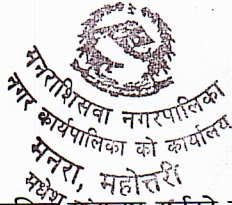 मनराशिसवा नगरपालिका
नगर कार्यपालिका को कार्यालय
मनरा, महोत्तरी
मधेश